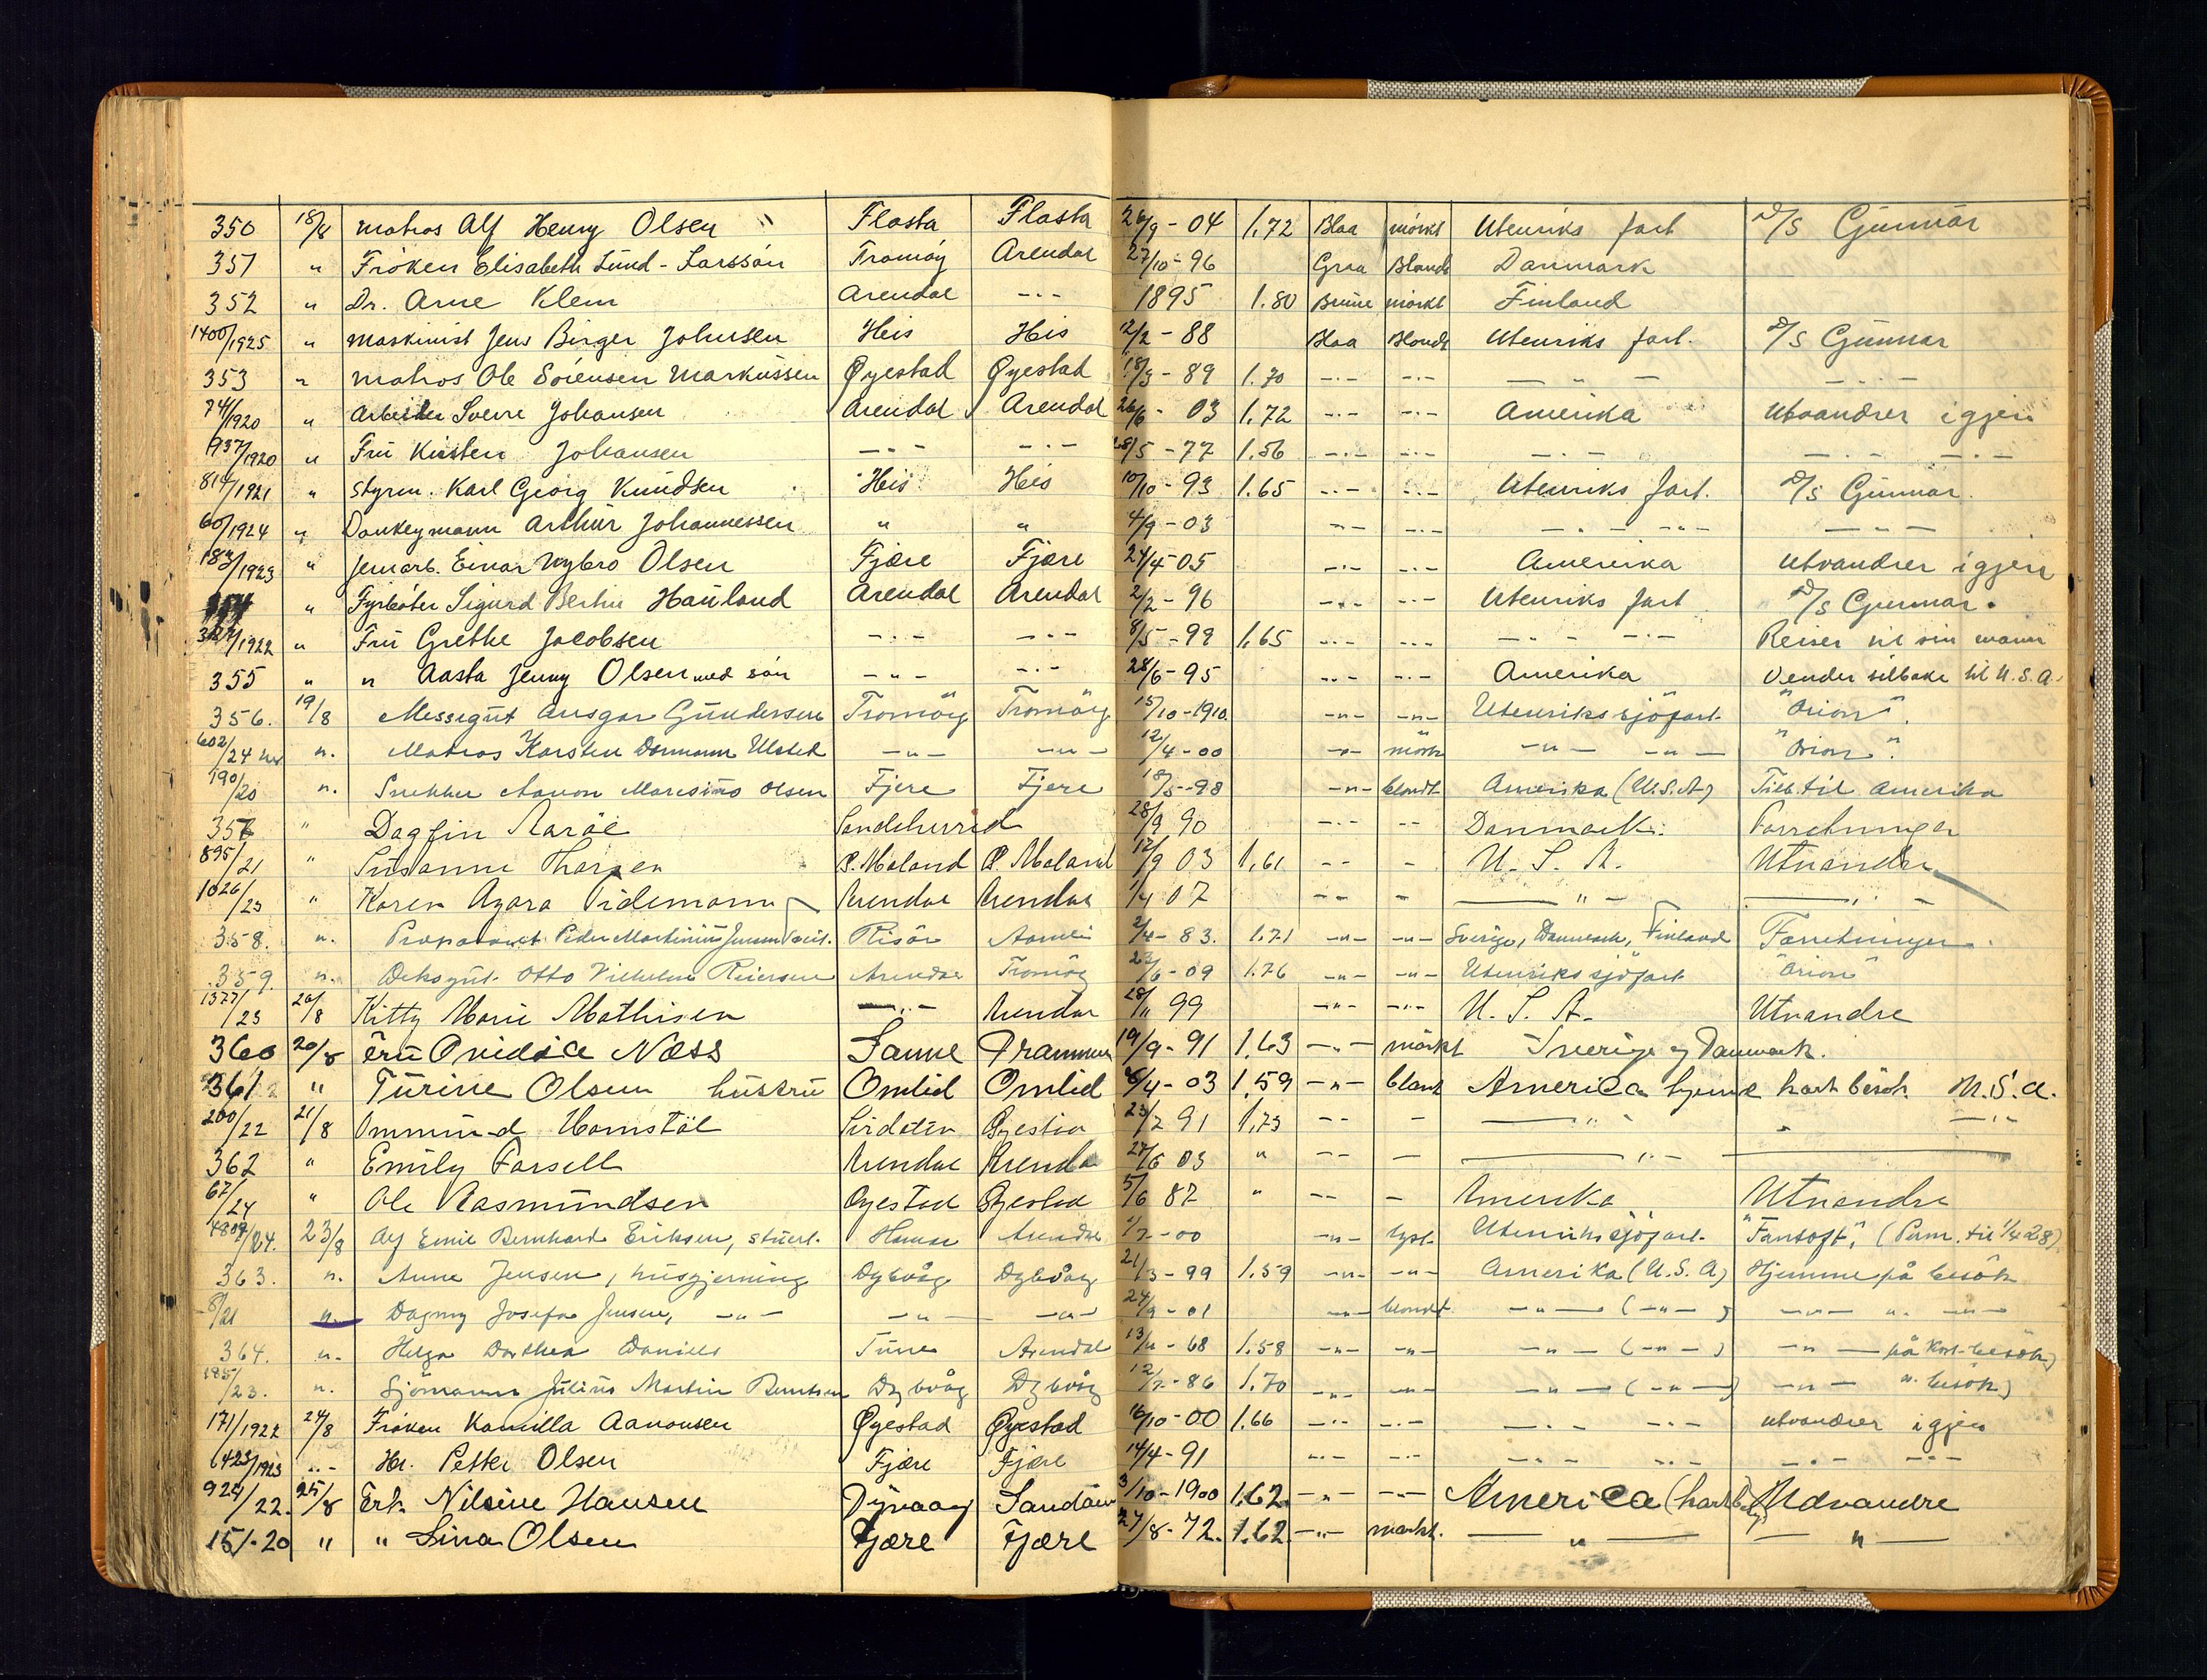 350 18/8 matros Alf Henry Olsen " Flosta Flosta 26/9 - 04 1.72 Blaa mörkt Utenriks fart D/S Gunnar
351 " Fröken Elisabeth Lund - Larssön Tromöy Arendal 27/10 - 96 Graa Blondt Danmark
352 " Dr. Arne Klem Arendal -"- 1895 1.80 Brune mörkt Finland
1400/1925 " maskinist Jens Birger Johnsen His His 12/2 - 88 Blaa Blondt Utenriks fart. D/S Gunnar
353 " matros Ole Sörensen Markussen Øyestad Øyestad 18/3 - 89 1.70 -"- -"- - " - - " -
74/1920 " Arbeider Sverre Johansen Arendal Arendal 26/6 - 03 1.72 -"- -"- Amerika Utvandrer igjen
937/1920 " Fru Kirsten Johansen -"- -"- 28/5 - 77 1.56 -"- -"- -"- -"- -"-
814/1921 " Styrm. Karl Georg Knudsen His His 10/10 - 93 1.65 -"- -"- Utenriks fart. D/S Gunnar.
60/1924 " Donkeymann Arthur Johannessen " " 4/9 - 03 -"- -"- -"- -"- -"-
183/1923 " Jernarb. Einar Nybro Olsen Fjære Fjære 24/4 05 -"- -"- Amerika Utvandrer igjen
" Fyrböter Sigurd Hauland Arendal Arendal 2/2 - 96 -"- -"- Utenriks fart D/S Gunnar.
/1922 " Fru Grethe Jacobsen -"- -"- 8/5 - 99 1.65 -"- -"- -"- -"- Reiser til sin mann
355 " " Aasta Jenny Olsen med sön -"- -"- 28/6 - 95 -"- -"- Amerika Vender tilbake til U.S.A.
356. 19/8 Messegut Ansgar Gundersen Tromöy Tromöy 15/10 - 1910. -"- -"- Utenrikssjöfart "Orion".
602/24 ". Matros Karsten Ulsted -"- -"- 12/4 - 00 -"- mörk -"- -"- "Orion".
190/20 ". Snekker Aanon Maresius Olsen Fjere Fjere 18/5 - 98 -"- blondt Amerika (U.S.A) Tilb. til Amerika
357 " Dagfin Sandeherred 28/9 90 -"- -- Danmark. Forretninger
895/21 " Susanne Ø. Moland Ø. Moland 12/9 03 1,61 -- - U. S. A. Utvandre
1026/23 " Karen Agara Tidemann Arendal Arendal 1/4 07 -- - -"- -"-
358. ". Peder Martinius Jensen Risör 2/4 - 83. 1.71 -"- -"- Sverige, Danmark, Finland Forretninger.
359. ". Deksgut. Otto Vilhelm Reiersen Arendal Tromöy 23/6 - 09 1.76 -"- -"- Utenrikssjöfart "Orion"
1377/23 20/8 Kitty Marie Mathisen -"- Arendal 28/11 99 -"- -"- U. S. A. Utvandre
360 20/8 Fru Næss Sanne Drammen 19/9 - 91 1.63 -"- mörkt Sverige og Danmark.
361 " Turine Olsen hustru Omlid Omlid /4 - 03 1.59 -"- America hjeme kort besök U.S.A.
200/22 21/8 Ommund Øyestad 23/2 91 1,73 -- - -"- -"-
362 " Emily Forsell Arendal Arendal 27/6 03 " -- - -"-
67/24 " Ole Rasmundsen Øyestad Øyestad 5/6 87 " -- - Amerika Utvandre
/24. 23/8 Alf Emil Bernhard Eriksen, stuert. Arendal 1/7 - 00 -"- lyst. Utenrikssjöfart. "Fantoft", (Perm. til 1/4 28)
363. ". Anne Jensen, husgjerning Dybvåg Dybvåg 21/3 - 99 1.59 -"- -"- Amerika (U.S.A) Hjemme på besök
8/21 ". Dagny Josefa Jensen, -"- -"- -"- 24/9 - 01 -"- blondt -"- (-"-) -"- ". -"-
364. ". Helga Dorthea Daniels Tune Arendal 13/11 - 68 1.58 -"- -"- -"- (-"-) -"- på kort besök)
185/23. ". Sjömann Julius Martin Berntsen Dybvåg Dybvåg 12/7 - 86 1.70 -"- -"- -"- (-"-) -"- ". besök)
171/1922 24/8 Fröken Kamilla Aanonsen Øyestad Øyestad 16/10 - 00 1.66 -"- -"- -"- -"- utvandrer igjen
1423/1923 -"- Hr. Petter Olsen Fjære Fjære 14/4 - 91 -"- -"- -"- -"- -"- -"-
924/22. 25/8 Frk. Nilsine Hansen Dÿvaag 3/10 - 1900 1.62. -"- -"- America (kort Udvandre
15/-20 " " Lina Olsen Fjære Fjære 27/8 - 72. 1.62. -"- mørkt. -"- -"-